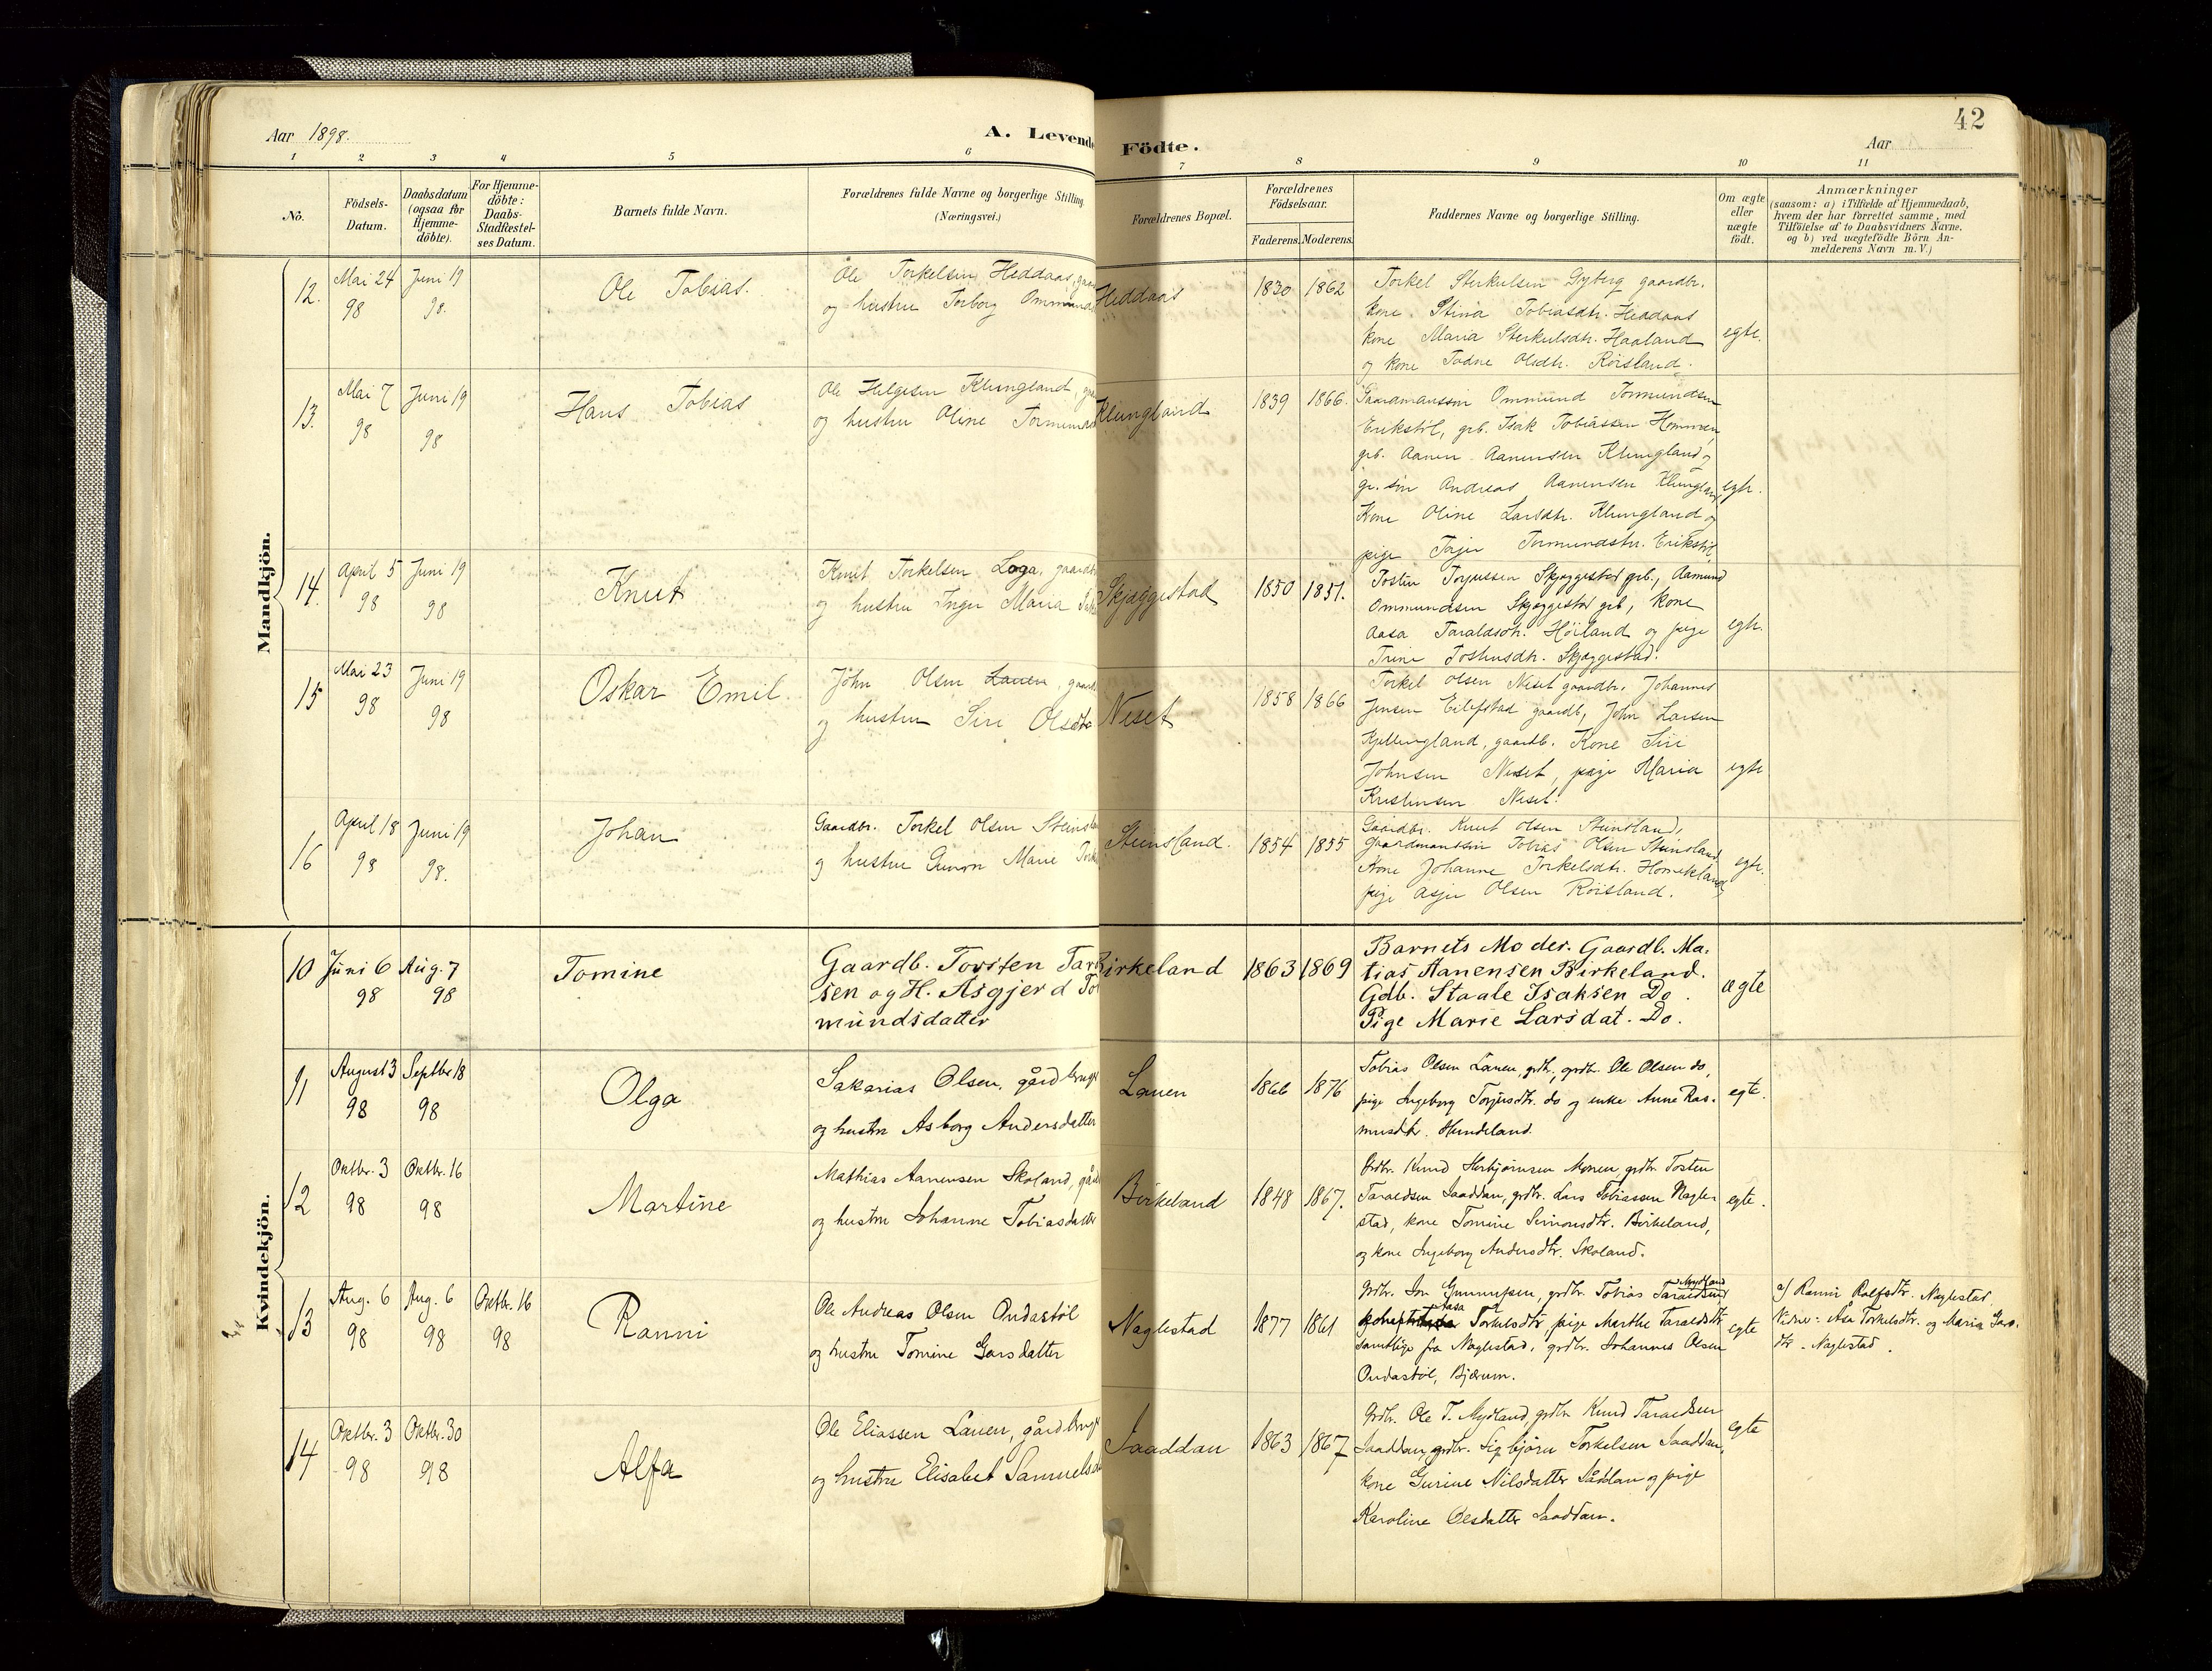 42
Aar 1898.
A. Levende
Födte.
Aar
1 2 3 4 5 6 7 8 9 10 11
No.
Födsels-
Datum.
Daabsdatum
(ogsaa for
Hjemme-
döbte).
For Hjemme-
döbte:
Daabs-
Stadfæstel-
ses Datum.
Barnets fulde Navn.
Forældrenes fulde Navne og borgerlige Stilling
(Næringsvei.)
Forældrenes Bopæl.
Forældrenes
Födselsaar.
Faderens. Moderens.
Faddernes Navne og borgerlige Stilling.
Om ægte
eller
uægte
födt.
Anmærkninger
(saasom: a) i Tilfælde af Hjemmedaab,
hvem der har forrettet samme, med
Tilföielse af to Daabsvidners Navne,
og b) ved uægtefödte Börn An-
melderens Navn m. V.)
Mandkjön.
12.
Mai 24
98
Juni 19
98.
Ole Tobias.
Ole Torkelsen Heddaas,
og hustru Torborg
Heddaas
1830 1862
Torkel Sterkulsen Gyberg gaardbr.
kone Stina Tobiasdtr. Heddaas
kone Maria Sterkulsdtr. Haaland
og kone Tadne Olsdtr. Röisland.
egte.
13.
Mai 7
98
Juni 19
98
Hans Tobias
Ole Helgesen Klungland,
og hustru Oline
Klungland
1839 1866.
Gaardmansson Ommund Tormundsen
Erikstöl, grb. Isak Tobiassen Hommen,
grb. Aanen Aanensen Klungland og
gr. sön Andreas Aanensen Klungland
Kone Oline Larsdtr. Klungland og
pige Tormundsdtr. Erikstöl
egte.
14.
April 5
98
Juni 19
98
Knut
Knut Torkelsen Loga, gaardb
og hustru Inger Maria
Skjæggestad
1850 1851.
Tosten Torjussen Skjæggestad grb., Aamund
Ommundsen Skjæggestad grb, kone
Aasa Taraldsdtr. Höiland og pige
Trine Tostensdtr. Skjæggestad.
egte.
15
Mai 23
98
Juni 19
98
Oskar Emil.
John Olsen Lauen, gaard
og hustru Siri Olsdtr
Neset
1858 1866
Torkel Olsen Neset gaardbr. Johannes
Jensen Eilefstad gaardb, John Larsen
Kjellingland, gaardb. Kone Siri
Johnsen Neset, pige Maria
Kristensen Neset.
egte
16
April 18
98
Juni 19
98.
Johan
Gaardbr. Torkel Olsen Steinsla
og hustru Gunvor Marie Tork
Steinsland.
1854 1855
Gaardbr. Knut Olsen Steinsland,
gaardmandssön Tobias Olsen Steinsland,
Kone Johanne Torkelsdtr. Homekland,
pige Asju Olsen Röisland.
egte.
Kvindekjön.
10
Juni 6
98
Aug. 7
98
Tomine
Gaardb. Torsten Tar
sen og H. Asgjerd Tor
mundsdatter
Birkeland
1863 1869
Barnets Moder. Gaardb. Ma-
tias Aanensen Birkeland.
Gdb. Staale Isaksen Do.
Pige Marie Larsdat. Do.
ægte
11
August 3
98
Septbr 18
98
Olga
Sakarias Olsen, gårdbrug
og hustru Asborg Andersdatter
Lauen
1866 1876
Tobias Olsen Lauen, grdbr, grdbr. Ole Olsen do,
pige Ingeborg Torjusdtr. do og enke Anne Ras-
musdtr. Hundeland.
egte.
12
Oktbr. 3
98
Oktbr. 16
98
Martine
Mathias Aanensen Skoland, går
og hustru Johanne Tobiasdatter
Birkeland
1848 1867.
Grdbr. Knud Herbjörnsen Monen, grdbr. Tosten
Taraldsen Saaddan, grdbr. Lars Tobiassen Nagle-
stad, kone Tomine Simonsdtr. Birkeland,
og kone Ingeborg Andersdtr. Skoland.
egte.
13
Aug. 6
98
Aug. 6
98
Oktbr. 16
98
Ranni
Ole Andreas Olsen Ondastöl
og hustru Tomine Garsdatter
Naglestad
1877 1861
Mydland
Grdbr. Jon Gunnufsen, grdbr. Tobias Taraldsen,
Aasa
Torkelsdtr pige Marthe Taraldsdtr
samtlige fra Naglestad, grdbr. Johannes Olsen
Ondastöl, Bjærum.
egte
a) Ranni Rolfsdtr. Naglestad
Vidner: Åsa Torkelsdtr. og Maria Gars-
dtr. Naglestad.
14
Oktbr. 3
98
Oktbr. 30
98
Alfa
Ole Eliassen Lauen, gårdbrug
og hustru Elisabet Samuelsd
Saaddan
1863 1867
Grdbr. Ole T. Mydland, grdbr Knud Taraldsen
Saaddan, grdbr. Sigbjörn Torkelsen Saaddan,
kone Gurine Nilsdatter Såddan og pige
Karoline Olsdatter Saaddan.
egte